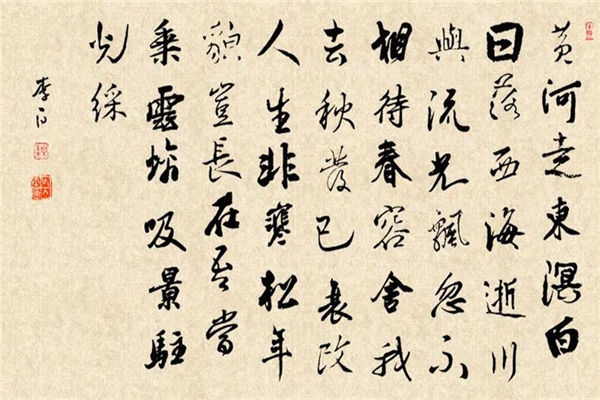 黄河走東溟白
日落西海逝川
與流光飄忽不
相待春容舍我
去秋發已衰改
人生非寒松年
貌豈長在吾當
乘雲螭吸景駐
光綵
李白